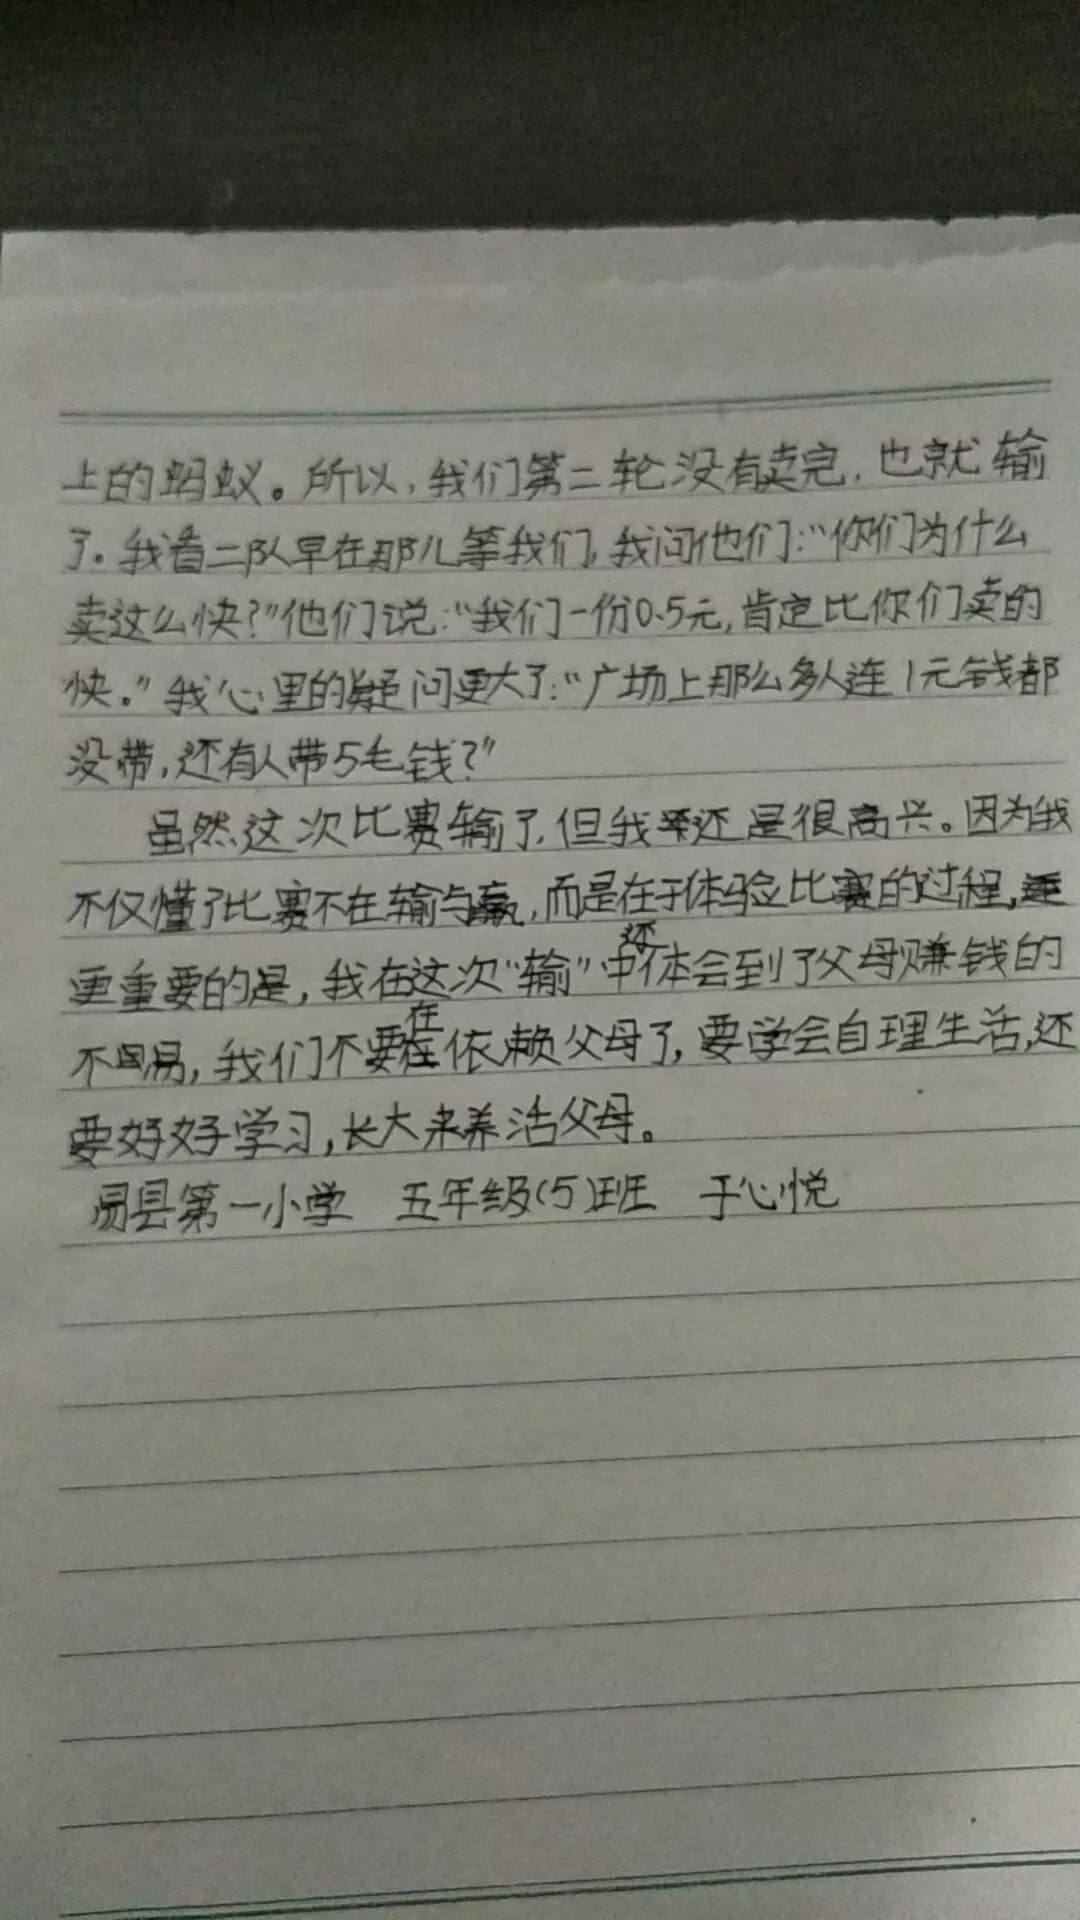 上的蚂蚁。所以，我们第二轮没有卖完，也就输
了。我看二队早在那儿等我们，我问他们：“你们为什么
卖这么快？”他们说：“我们一份0.5元，肯定比你们卖的
快。”我心里的疑问更大了：“广场上那么多人连1元钱都
没带，还有人带5毛钱？”
虽然这次比赛输了，但我还是很高兴。因为我
不仅懂了比赛不在输与赢，而是在于体验比赛的过程，
更重要的是，我在这次“输”中还体会到了父母赚钱的
不易，我们不要在依赖父母了，要学会自理生活，还
要好好学习，长大来养活父母。
易县第一小学 五年级（5）班 于心悦